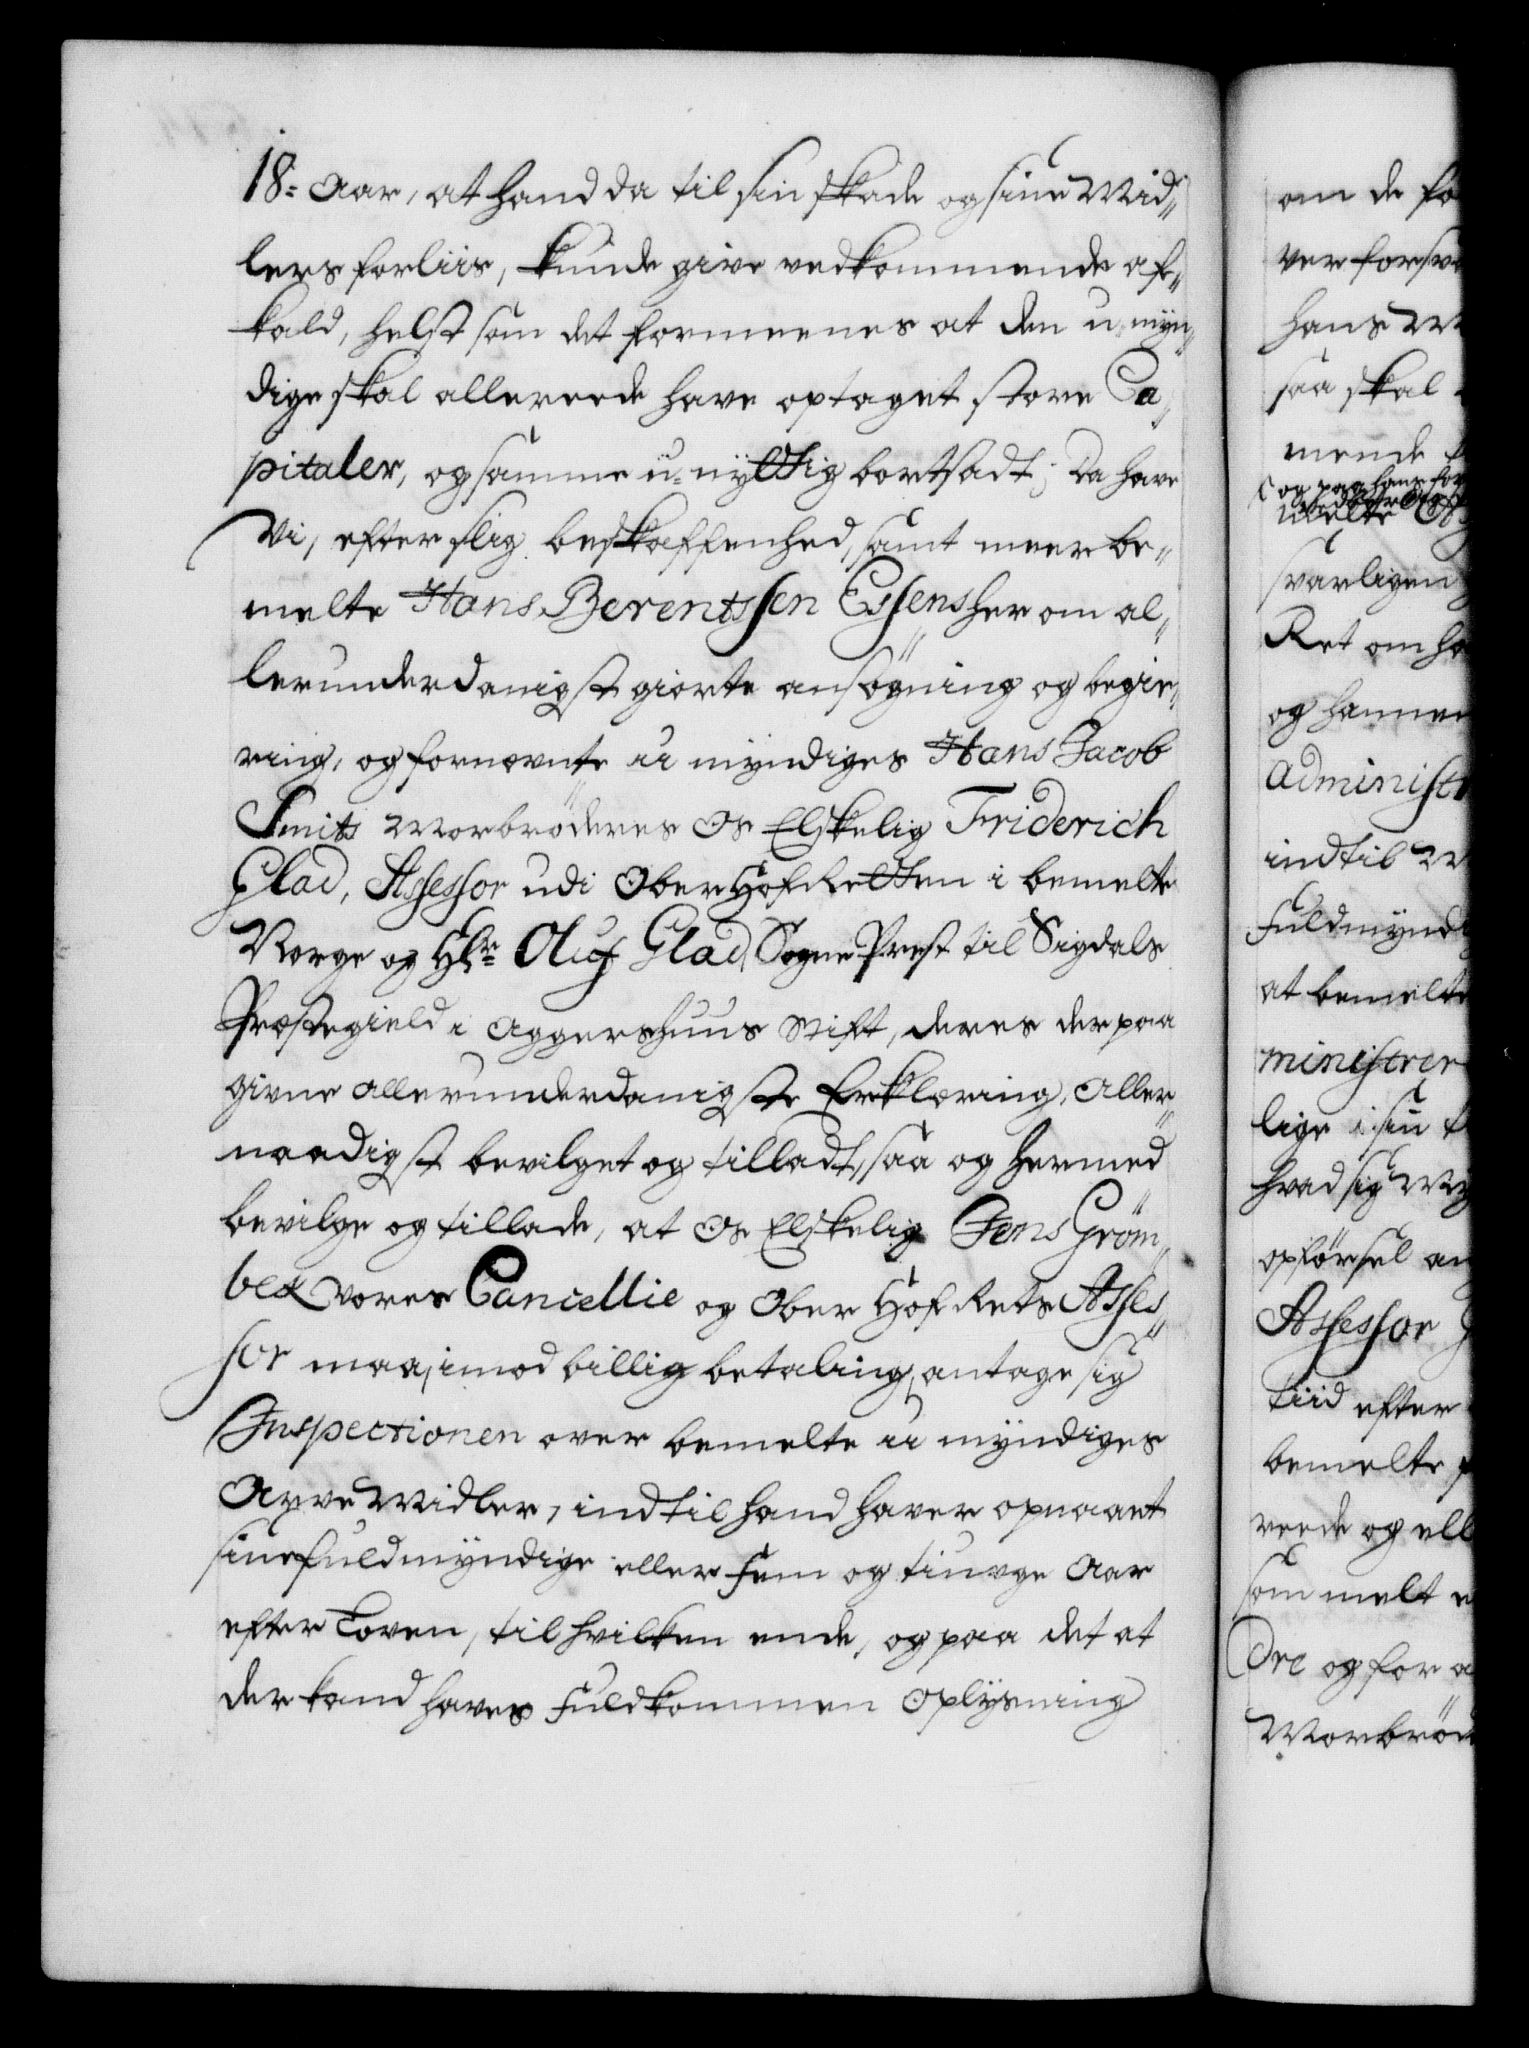 18= Aar, at hand da til sin skade og sine Mid„
lers forliis, kunde give vedkommende af„
kald, helst som det formeenes at den u-myn„
dige skal allereede have optaget store Ca„
pitaler, og samme u-nyttig bortsadt; Da have
Vi, efter slig beskaffenhed, samt meerbe„
melte Hans Berentssen Essens her om al„
lerunderdanigst giorte ansögning og begie„
ring, og fornevnte u myndiges Hans Jacob
Smits Morbröderes Os Elskelig Friderich
Glad, Assessor udi Ober Hof Retten i bemelte
Norge og Hr. Oluf Glad, Sogne Prest til Sigdals
Præstegield i Aggershuus Stift, deres derpaa
givne allerunderdanigste Erklæring, Aller„
naadigst bevilget og tilladt, saa og hermed
bevilge og tillade, at Os Elskelig Jens Gröm„
bek vores Cancellie og Ober Hof Rets Asses„
sor maa, imod billig betaling, antage sig
Inspectionen over bemelte u myndiges
Arve Midler, indtil hand haver opnaaet
sine fuldmyndige eller fem og tiuvge Aar
efter Loven, til hvilken ende, og paa det at
der kand haves fuldkommen Oplysning
om de fo
ver forsva
hans M
saa skal
mende
og paa hans for
melte
svarligen
Ret om ha
og hannem
administr
indtil M
fuldmyndi
at bemelte
ministrer
lige i sin t
hvad sig
opförsel an
Assessor G
tiid efter
bemelte f
reede og ell
som melt e
Dre og for a
Morbröde